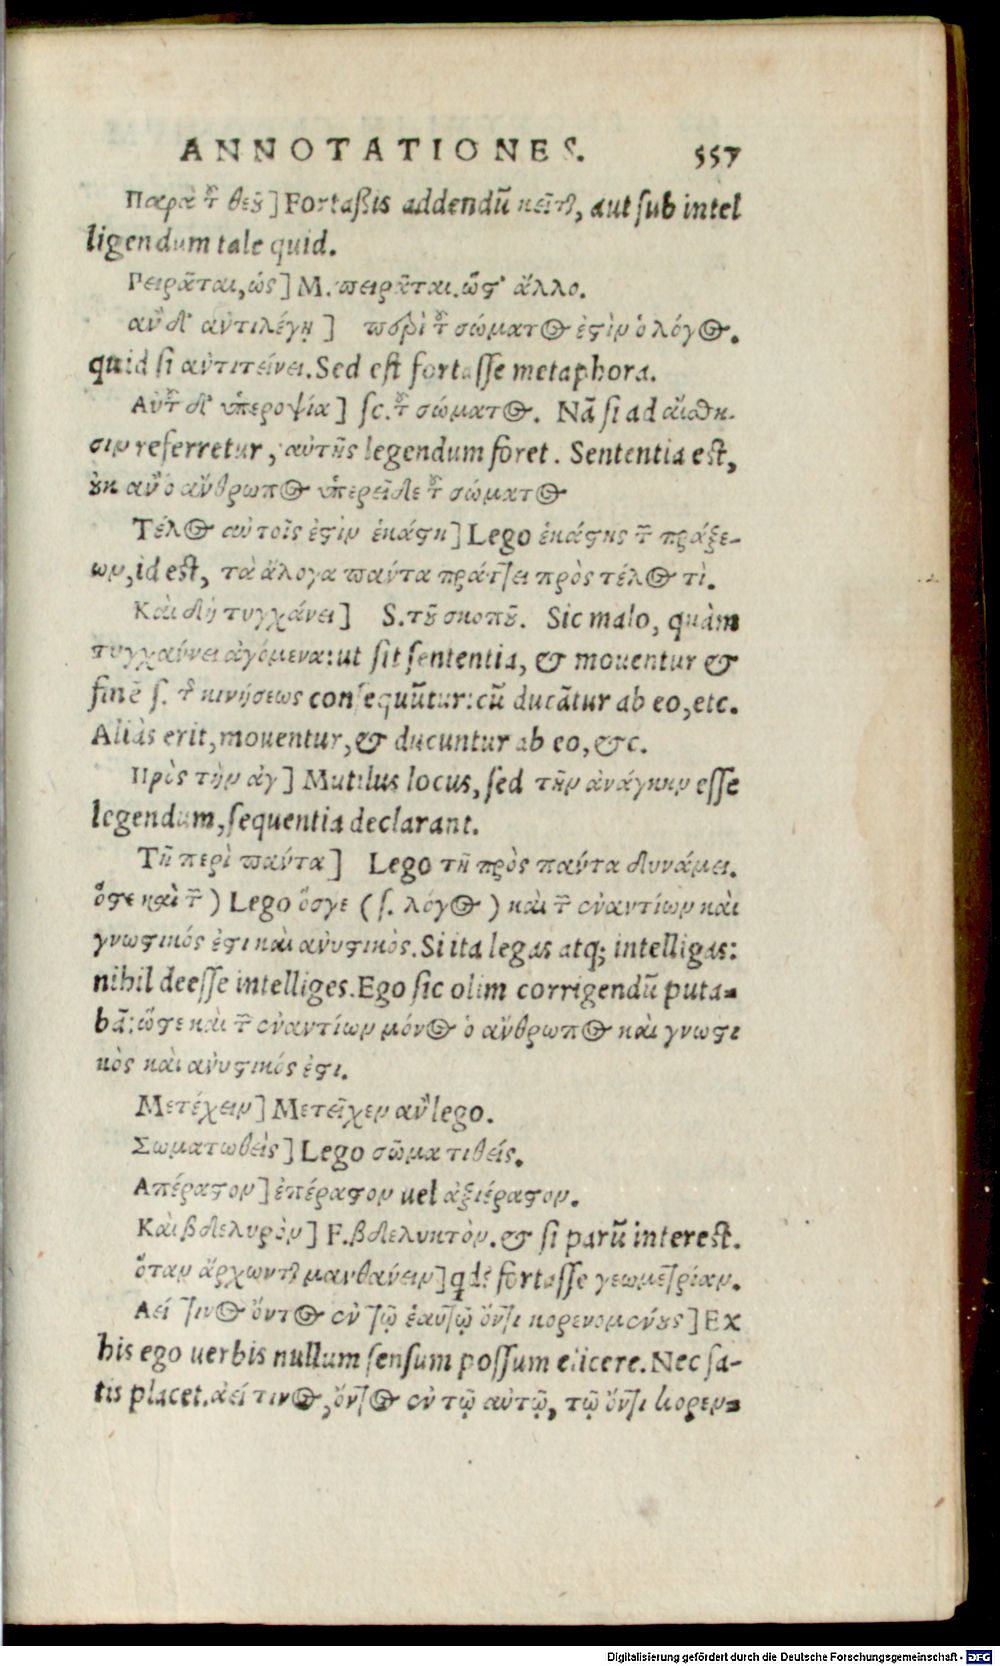 ANNOTATIONES. 557
Παρὰ τ῀ θεȣ͂] Fortaßis addendũ κεῖται, aut sub intel
ligendum tale quid.
Πειρᾶται, ὡς] M. πειρᾶται. ὥστ' ἄλλο.
ἂν δ' ἀντιλέγῃ] περὶ τ῀ σώματος ἐστὶν ὁ λόγος.
quid si ἀντιτείνει. Sed est fortasse metaphora.
Αὐτ῀ δ' ὑπεροψία] sc. τ῀ σώματος. Nã si ad αἴσθη-
σιν referretur, αὐτῆς legendum foret. Sententia est,
ȣκ ἂν ὁ ἄνθρωπος ὑπερεῖδε τ῀ σώματος
Τέλος αὐτοῖς ἐστὶν ἑκάστη] Lego ἑκάστης τ῀ πράξε-
ων, id est, τὰ ἄλογα πάντα πράττει πρὸς τέλος τὶ.
Καὶ δὴ τυγχάνει] S. τȣ͂ σκοπȣ͂. Sic malo, quàm
τυγχάνει ἀγόμενα: ut sit sententia, & mouentur &
finẽ s. τ῀ κινήσεως consequũtur: cũ ducãtur ab eo, etc.
Aliàs erit, mouentur, & ducuntur ab eo, &c.
Πρὸς τὴν ἀγ] Mutilus locus, sed τὴν ἀνάγκην esse
legendum, sequentia declarant.
Τῇ περὶ πάντα] Lego τῇ πρὸς πάντα δυνάμει.
ὅστε καὶ τ῀) Lego ὅσγε (s. λόγος) καὶ τ῀ ἐναντίων καὶ
γνωστικός ἐστι καὶ ἀνυστικὸς. Si ita legas atq; intelligas:
nihil deesse intelliges. Ego sic olim corrigendũ puta-
bã: ὥστε καὶ τ῀ ἐναντίων μόνος ὁ ἄνθρωπος καὶ γνωστι
κὸς καὶ ἀνυστικός ἐστι.
Μετέχειν] Μετεῖχεν ἂν lego.
Σωματωθεὶς] Lego σῶμα τιθείς.
Απέραστον] ἐπέραστον uel ἀξιέραστον.
Καὶ βδελυρὸν] F. βδελυκτὸν. & si parũ interest.
ὅταν ἄρχωνται μανθάνειν] qd; fortasse γεωμετρίαν.
Αεί τινος ὄντος ἐν τῷ ἑαυτῷ ὄντι κορενομένȣς] Ex
his ego uerbis nullum sensum possum elicere. Nec sa-
tis placet. ἀεί τινος, ὄντος ἐν τῷ αὐτῷ, τῷ ὄντι κορεν-
Digitalisierung gefördert durch die Deutsche Forschungsgemeinschaft - DFG